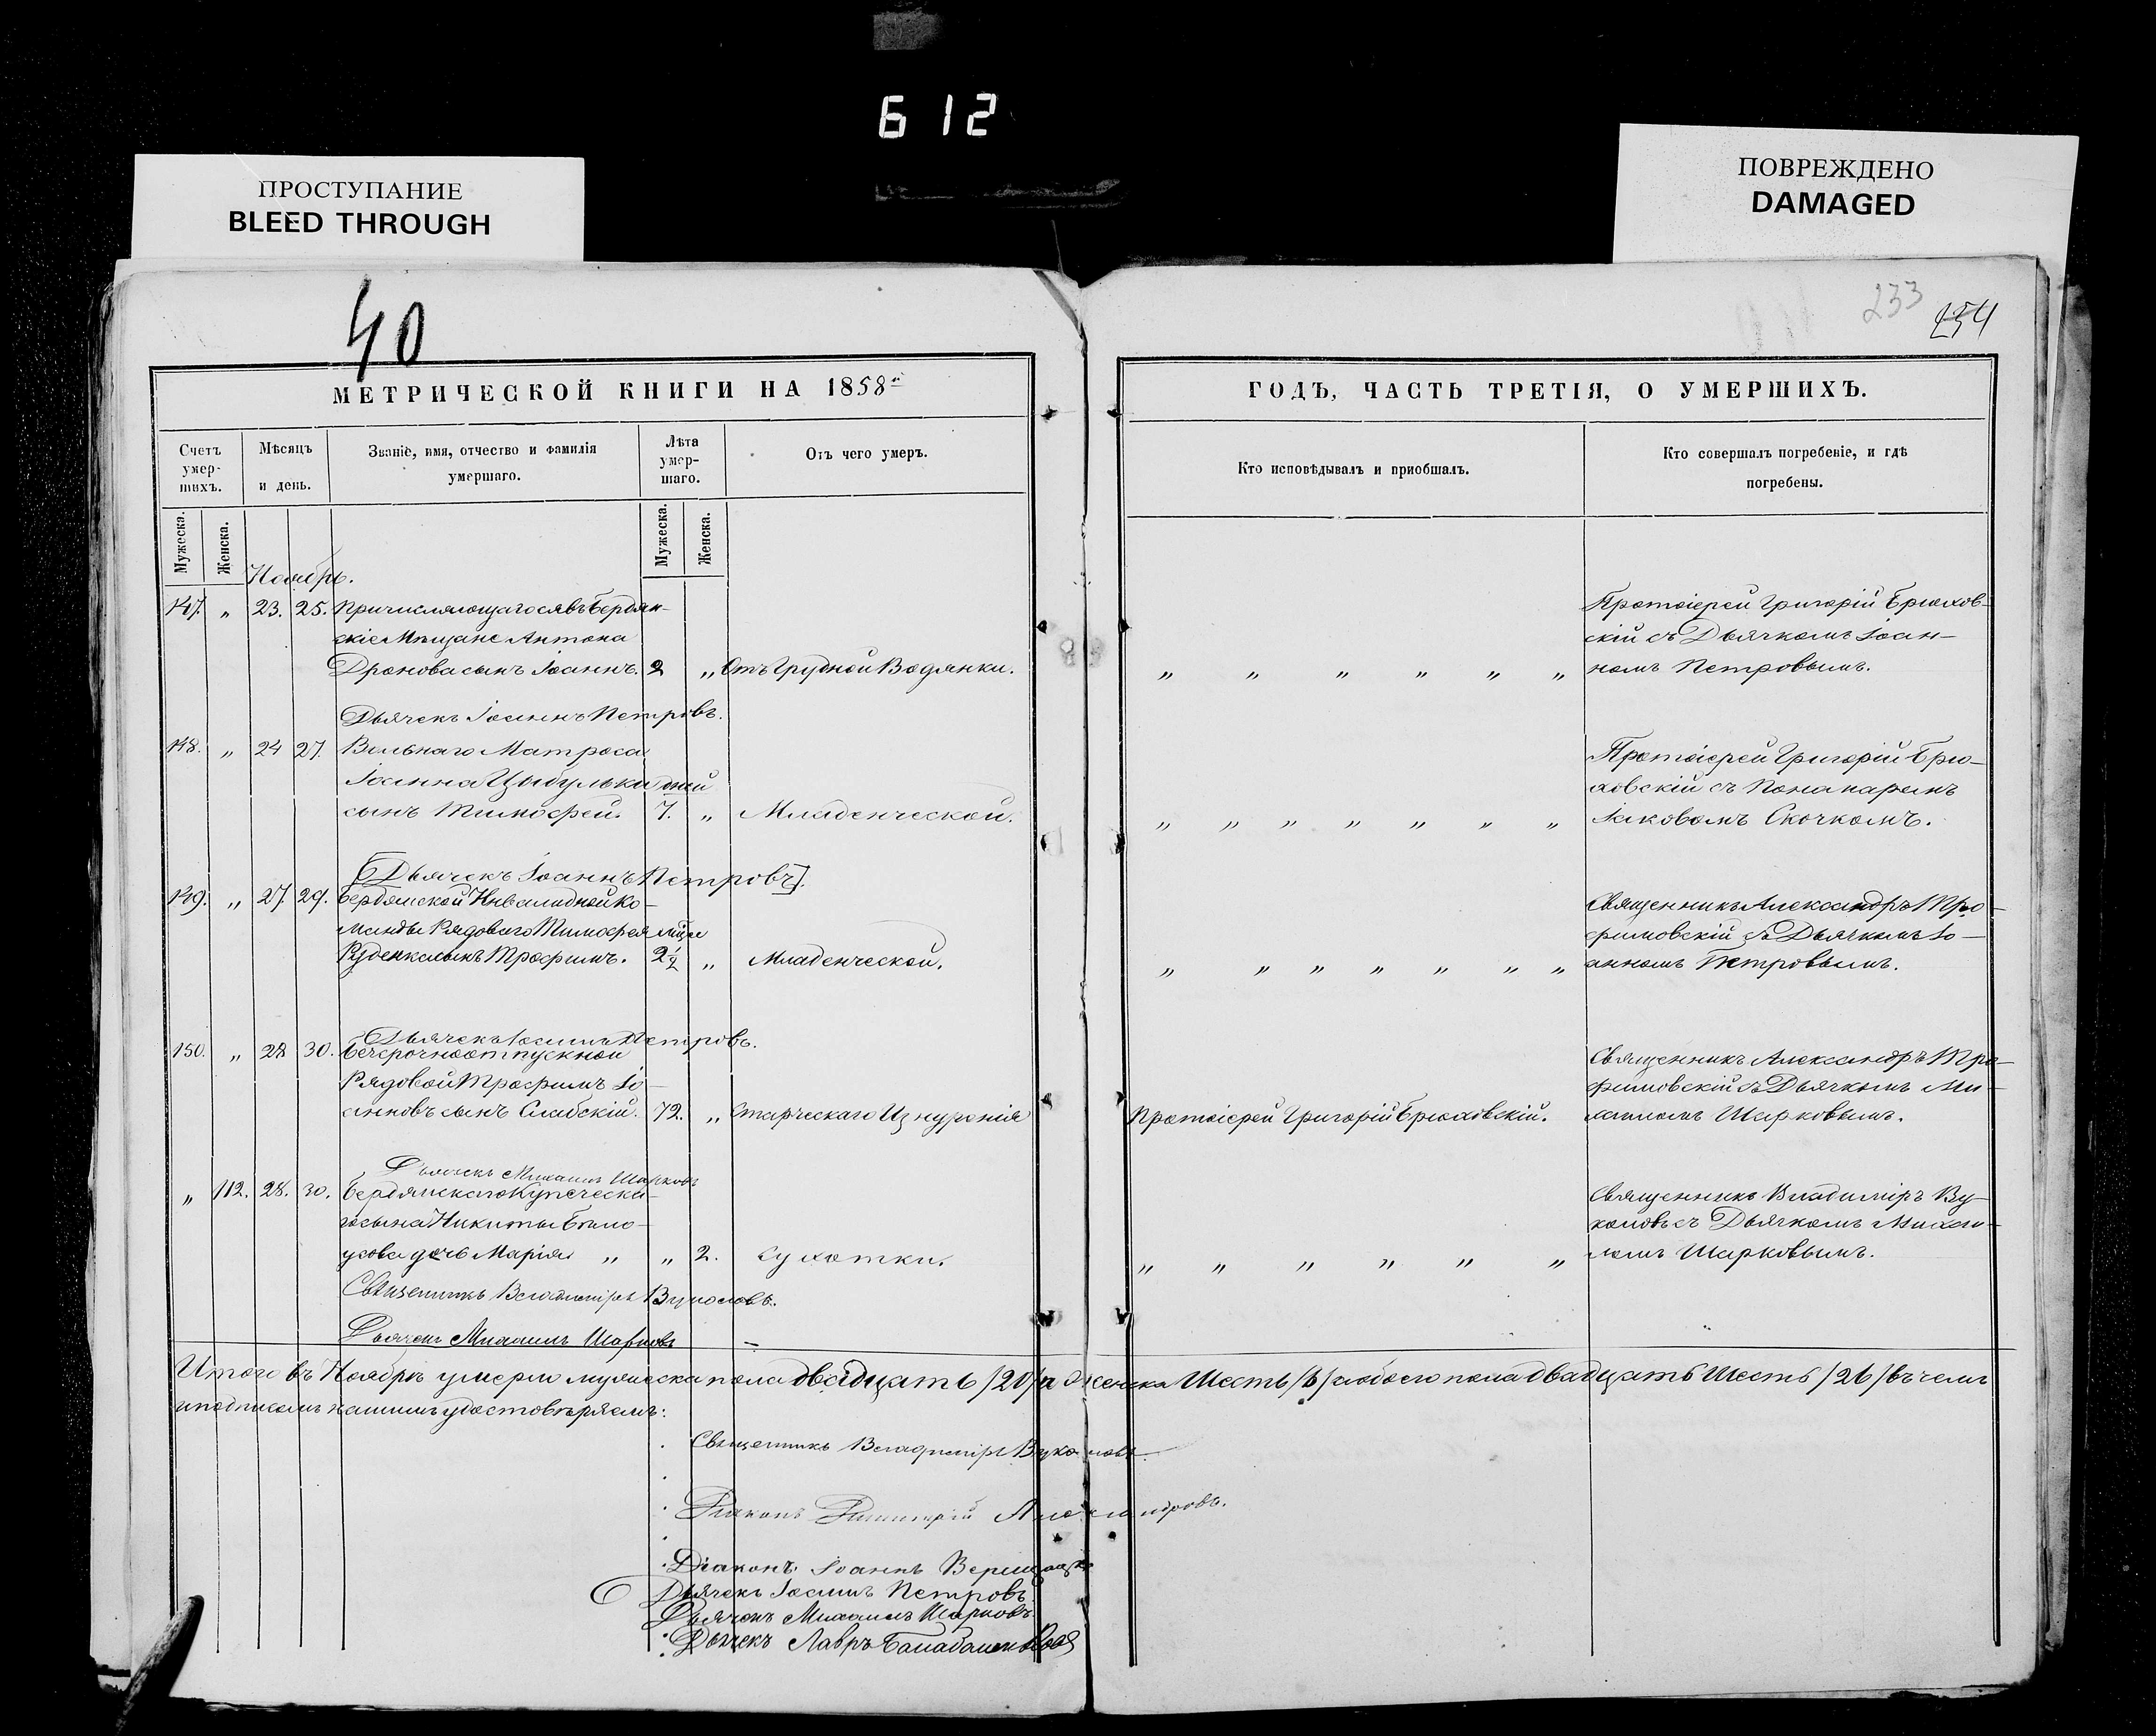 612
ПРОСТУПАНИЕ
BLEED THROUGH
ПОВРЕЖДЕНО
DAMAGED
40
233
МЕТРИЧЕСКОЙ КНИГИ НА 1858й
Счетъ умер-шихъ.
Мѣсяцъ и день.
Званіе, имя, отчество и фамилія умершаго.
Лѣта умер-шаго.
Отъ чего умеръ.
Мужеска.
Женска.
Мужеска.
Женска.
Ноябрь.
147. „ 23. 25. Причисляющагося въ Бердян-
скіе Мѣщане Антона
Дронова сынъ Іоаннъ. 2 „ Отъ Грудной Водянки.
Дьячекъ Іоаннъ Петровъ.
148. „ 24 27. Вольнаго Матроса
Іоанна Цыбульки дней
сынъ Тимофей. 7. „ Младенческой.
Дьячекъ Іоаннъ Петровъ.
149. „ 27 29. Бердянской Инвалидной Ко-
манды Рядоваго Тимофея мѣся
Руденка сынъ Трофимъ. 2½ „ Младенческой.
Дьячекъ Іоаннъ Петровъ.
150. „ 28 30. Безсрочноотпускной
Рядовой Трофимъ Іо-
анновъ сынъ Слабскій. 72. „ Старческаго Изнуренія
Дьячекъ Михаилъ Шарковъ
„ 112. 28. 30. Бердянскаго Купеческа-
го сына Никиты Бѣло-
усова дочь Марія „ „ 2. Сухотки.
Священникъ Владиміръ Вуколовъ.
Дьячекъ Михаилъ Шарковъ
ГОДЪ, ЧАСТЬ ТРЕТІЯ, О УМЕРШИХЪ.
Кто исповѣдывалъ и пріобщалъ.
Кто совершалъ погребеніе, и гдѣ погребены.
Протоіерей Григорій Брюхов-
скій съ Дьячкомъ Іоан-
„ „ „ „ „ „ номъ Петровымъ.
Протоіерей Григорій Брю-
ховскій съ Понамаремъ
„ „ „ „ „ „ „ Іаковомъ Скочкомъ.
Священникъ Александръ Тро-
фимовскій съ Дьячкомъ Іо-
„ „ „ „ „ „ „ анномъ Петровымъ.
Священникъ Александръ Тро-
фимовскій съ Дьячкомъ Ми-
Протоіерей Григорій Брюховскій. хаиломъ Шарковымъ.
Священникъ Владиміръ Ву-
коловъ съ Дьячкомъ Михаи-
„ „ „ „ „ „ ломъ Шарковымъ.
Итого въ Ноябрѣ умерло мужеска пола двадцать /20/ а женска Шесть /6/ а обоего пола двадцать Шесть /26/ въ чемъ
и подписомъ нашимъ удостовѣряемъ:
Священникъ Владиміръ Вуколовъ.
Діаконъ Димитрій Александровъ.
Діаконъ Іоаннъ
Дьячекъ Іоаннъ Петровъ
Дьячекъ Михаилъ Шарковъ
Дьячекъ Лавръ